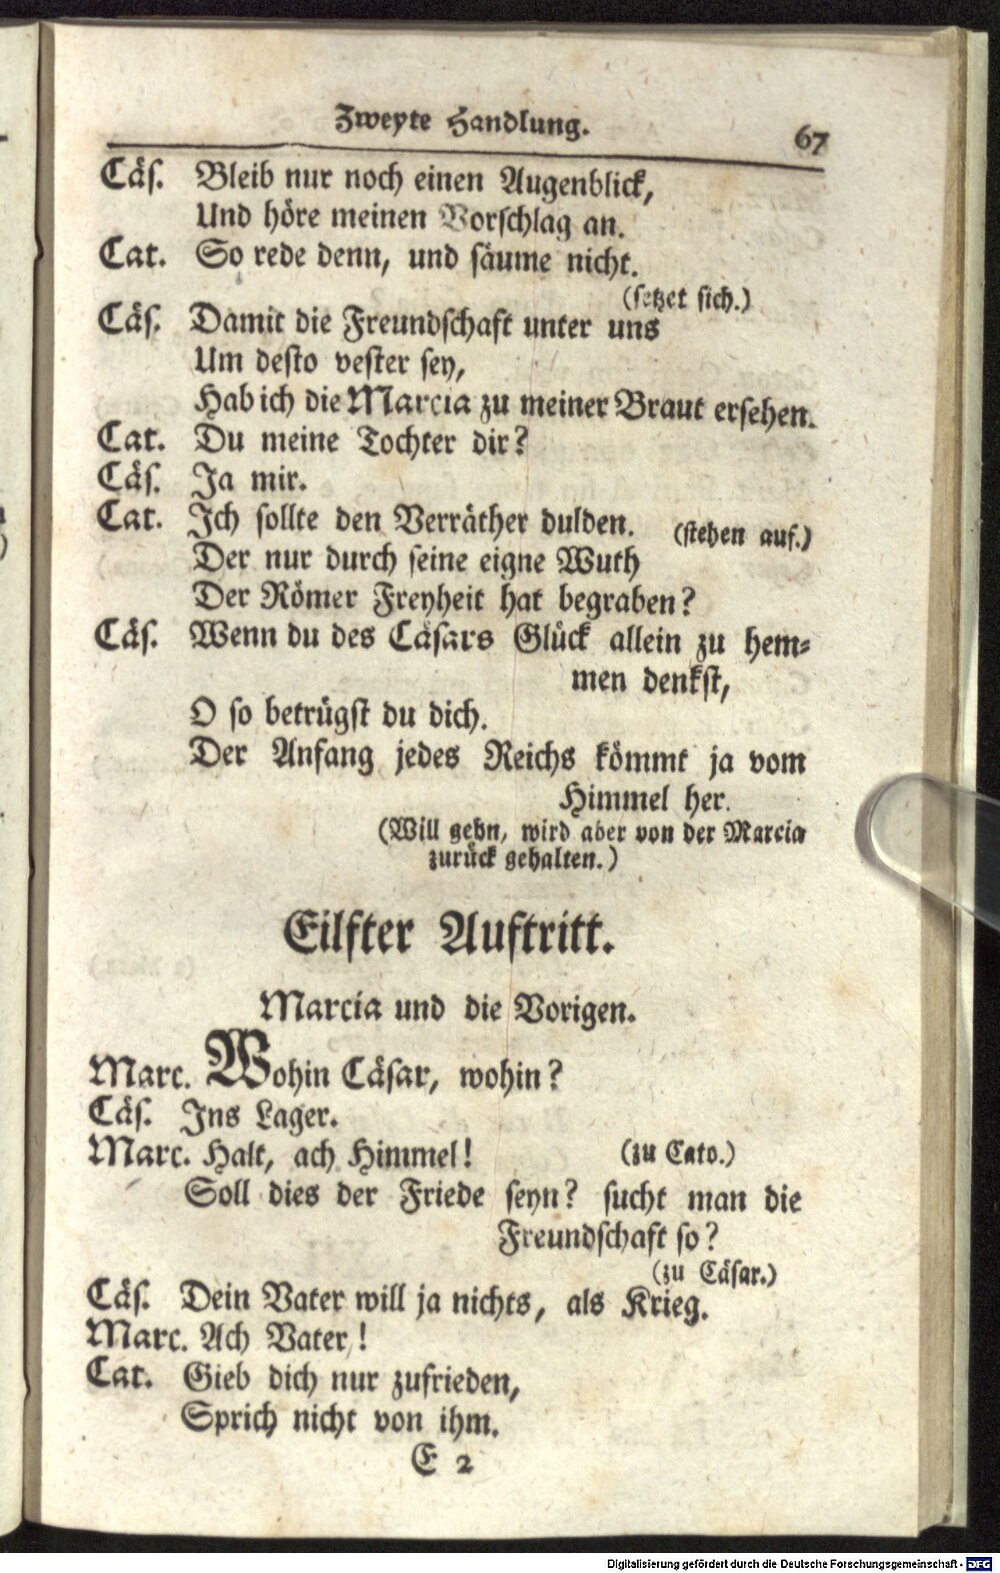 Zweyte Handlung. 67
Cäs. Bleib nur noch einen Augenblick,
Und höre meinen Vorschlag an.
Cat. So rede denn, und säume nicht.
(setzet sich.)
Cäs. Damit die Freundschaft unter uns
Um desto vester sey,
Hab ich die Marcia zu meiner Braut ersehen.
Cat. Du meine Tochter dir?
Cäs. Ja mir.
Cat. Ich sollte den Verräther dulden. (stehen auf.)
Der nur durch seine eigne Wuth
Der Römer Freyheit hat begraben?
Cäs. Wenn du des Cäsars Glück allein zu hem-
men denkst,
O so betrügst du dich.
Der Anfang jedes Reichs kömmt ja vom
Himmel her.
(Will gehn, wird aber von der Marcia
zurück gehalten.)
Eilfter Auftritt.
Marcia und die Vorigen.
Marc. Wohin Cäsar, wohin?
Cäs. Ins Lager.
Marc. Halt, ach Himmel! (zu Cato.)
Soll dies der Friede seyn? sucht man die
Freundschaft so?
(zu Cäsar.)
Cäs. Dein Vater will ja nichts, als Krieg.
Marc. Ach Vater!
Cat. Gieb dich nur zufrieden,
Sprich nicht von ihm.
E 2
Digitalisierung gefördert durch die Deutsche Forschungsgemeinschaft - DFG